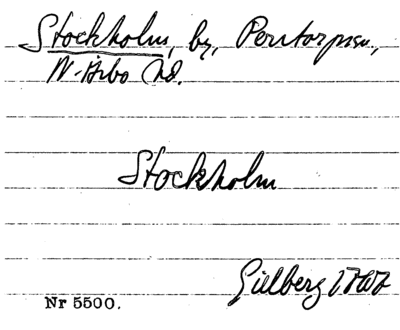 Stockholm, by, Pentorpsn,
N-Åsbo hd.
Stockholm
Gillberg 1767
Nr 5500.